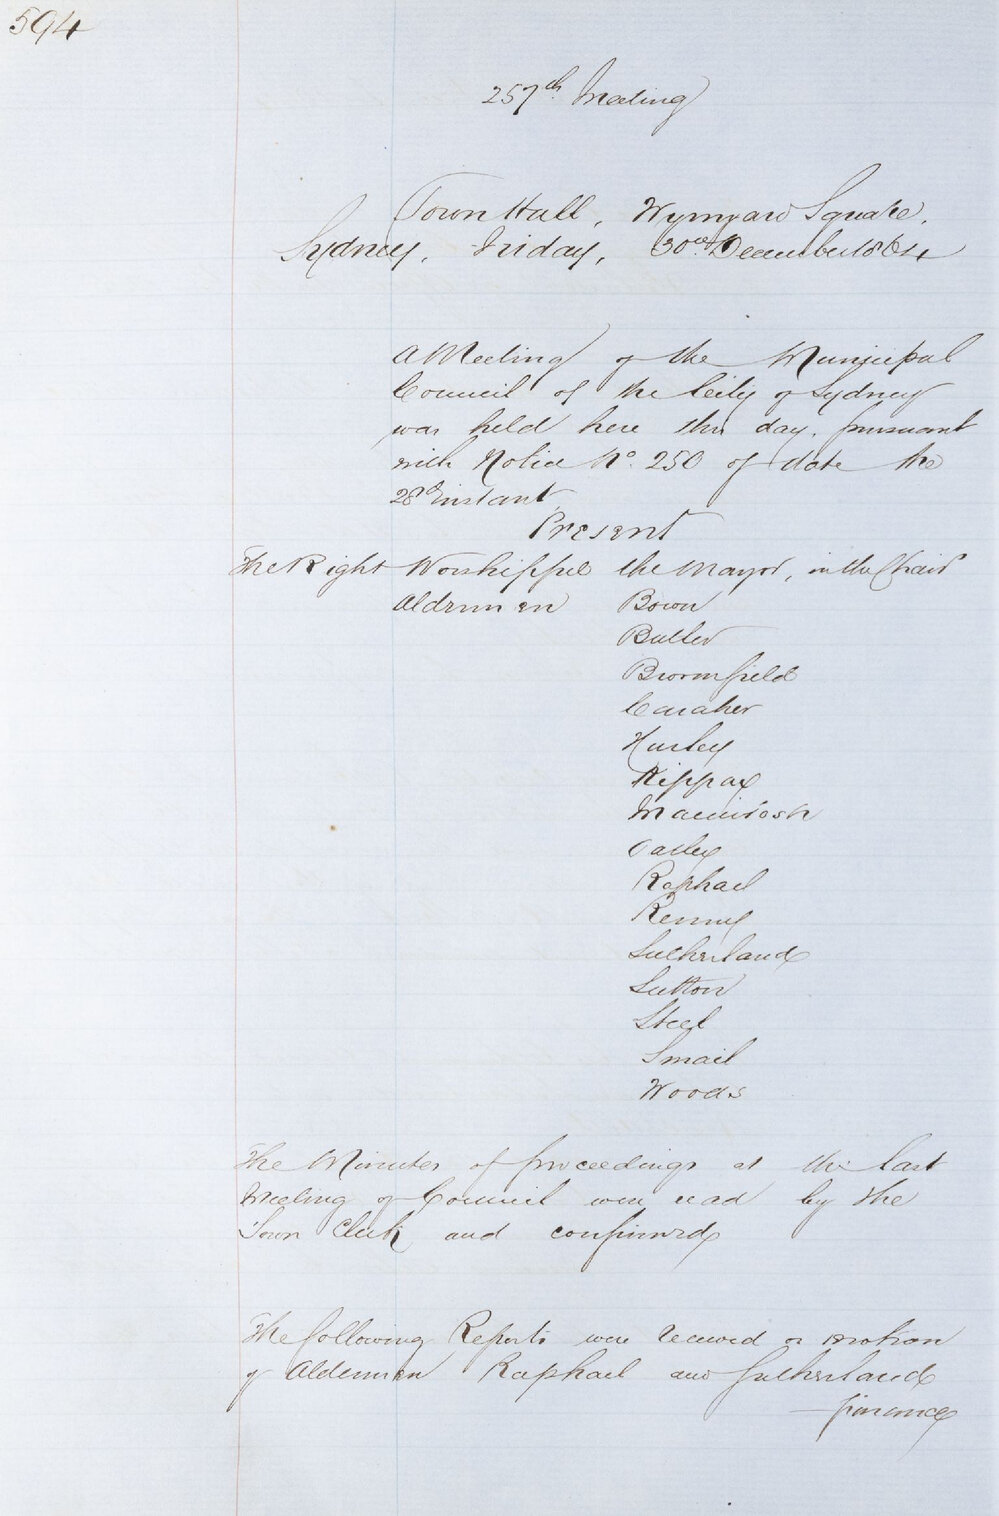 594
257th Meeting
Town Hall, Wynyard Square,
Sydney, Friday, 30th December 1864
A Meeting of the Municipal
Council of the City of Sydney
was held here this day, pursuant
with Notice No. 250 of date the
28th Instant
Present
The Right Worshipful the Mayor, in the Chair
Aldermen Bown
Butler
Broomfield
Caraher
Hurley
Hippax
Macintosh
Oatley
Raphael
Renny
Sutherland
Sutton
Steel
Smail
Woods
The Minutes of proceedings at the last
Meeting of Council were read by the
Town Clerk and confirmed
The following Reports were received on motion
of Aldermen Raphael and Sutherland
Finance